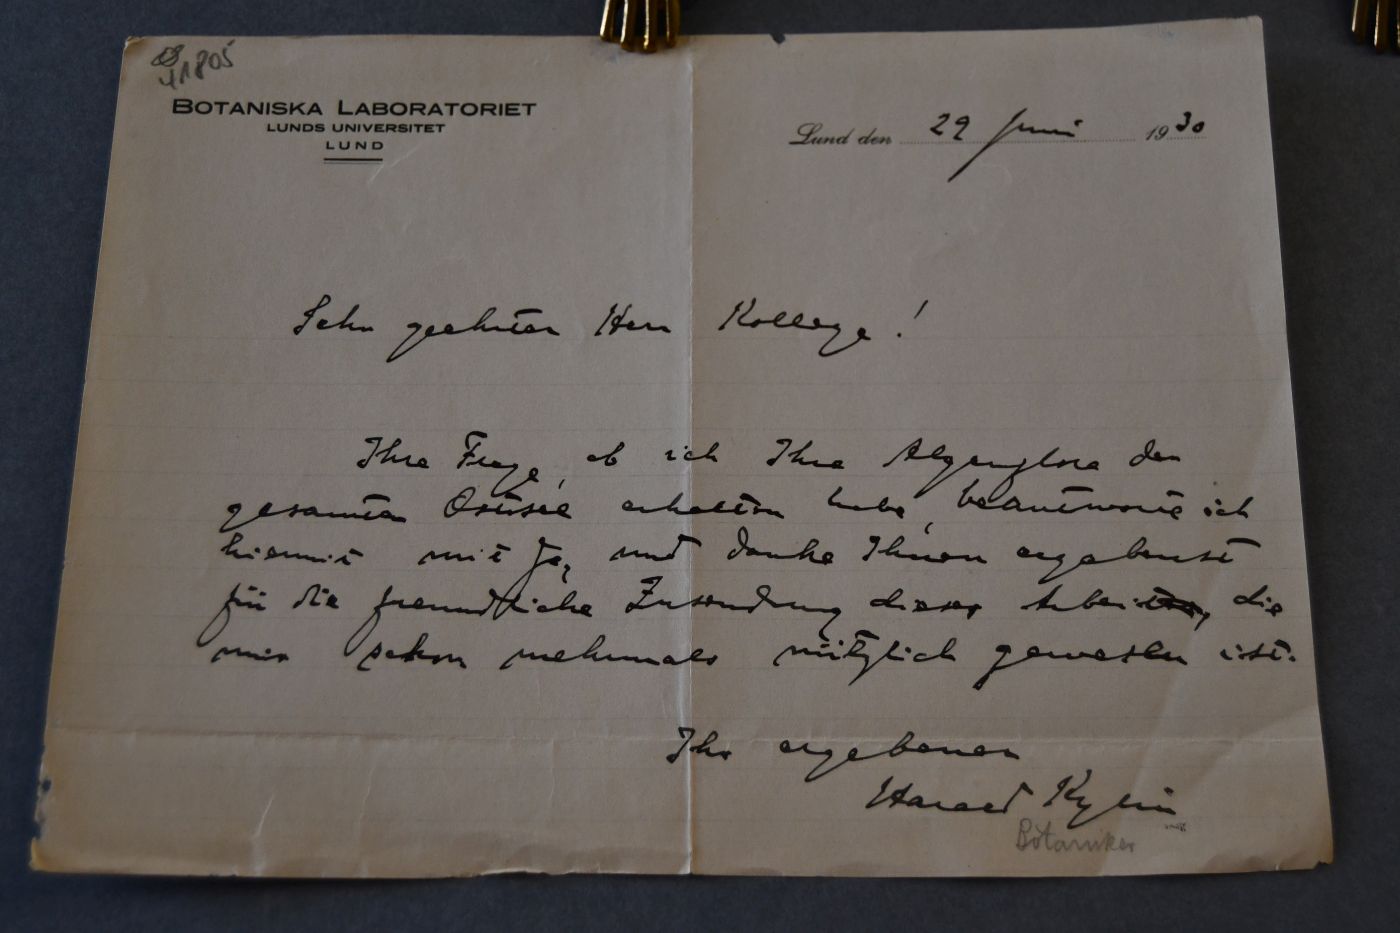 41805
BOTANISKA LABORATORIET
LUNDS UNIVERSITET
LUND
Lund den 29 Juni 1930
Sehr geehrter Herr Kollege!
Ihre Frage, ob ich Ihre Algenflora der
gesamten Ostsee erhalten habe, beantworte ich
hiermit mit Ja, und danke Ihnen ergebenst
für die freundliche Zusendung dieser Arbeit, die
mir schon mehrmals nützlich gewesen ist.
Ihr ergebener
Harald Kylin
Botaniker